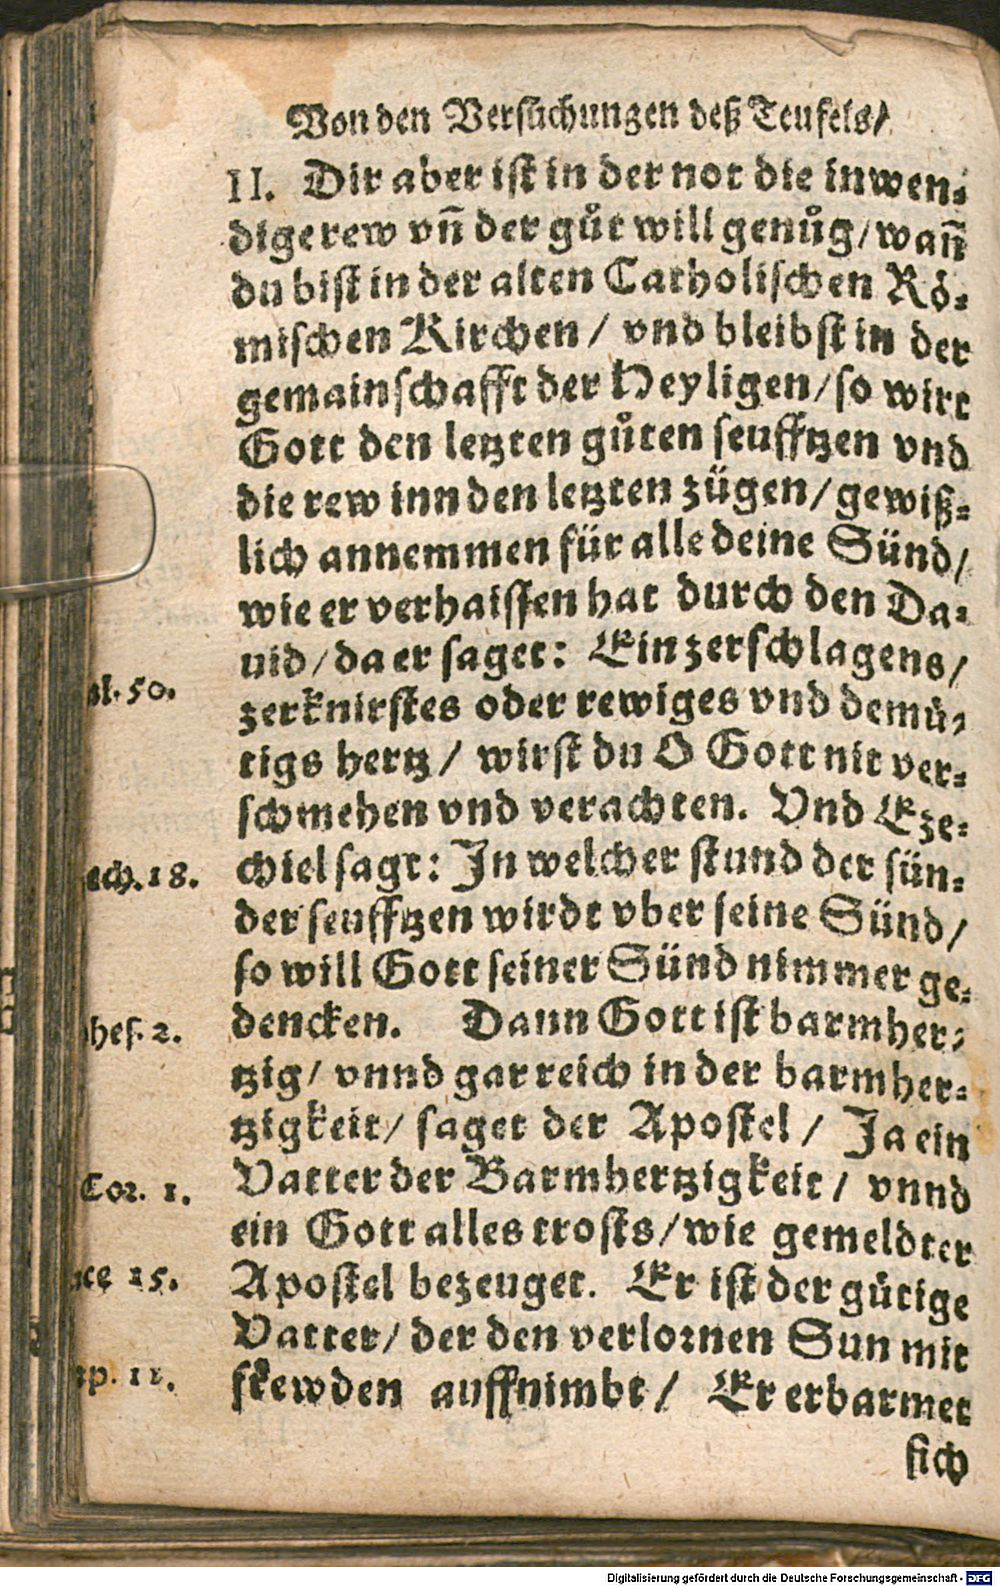 Von den Versuchungen deß Teufels/
II. Dir aber ist in der not die inwen-
dige rew vñ der gůt will genůg/wañ
du bist in der alten Catholischen Rö-
mischen Kirchen / vnd bleibst in der
gemainschafft der Heyligen/so wirt
Gott den letzten gůten seufftzen vnd
die rew inn den letzten zügen/gewiß-
lich annemmen für alle deine Sünd/
wie er verhaissen hat durch den Da-
uid/da er saget: Ein zerschlagens/
sl. 50.
zerknirstes oder rewiges vnd demü-
tigs hertz / wirst du O Gott nit ver-
schmehen vnd verachten. Vnd Eze-
ech. 18.
chiel sagt: In welcher stund der sün-
der seufftzen wirdt vber seine Sünd/
so will Gott seiner Sünd nimmer ge-
hes. 2.
dencken. Dann Gott ist barmher-
tzig/ vnnd gar reich in der barmher-
tzigkeit/ saget der Apostel / Ja ein
Cor. 1.
Vatter der Barmhertzigkeit / vnnd
ein Gott alles trosts/wie gemeldter
ce 15.
Apostel bezeuget. Er ist der gütige
Vatter/ der den verlornen Sun mit
p. 11.
frewden auffnimbt / Er erbarmet
sich
Digitalisierung gefördert durch die Deutsche Forschungsgemeinschaft - DFG